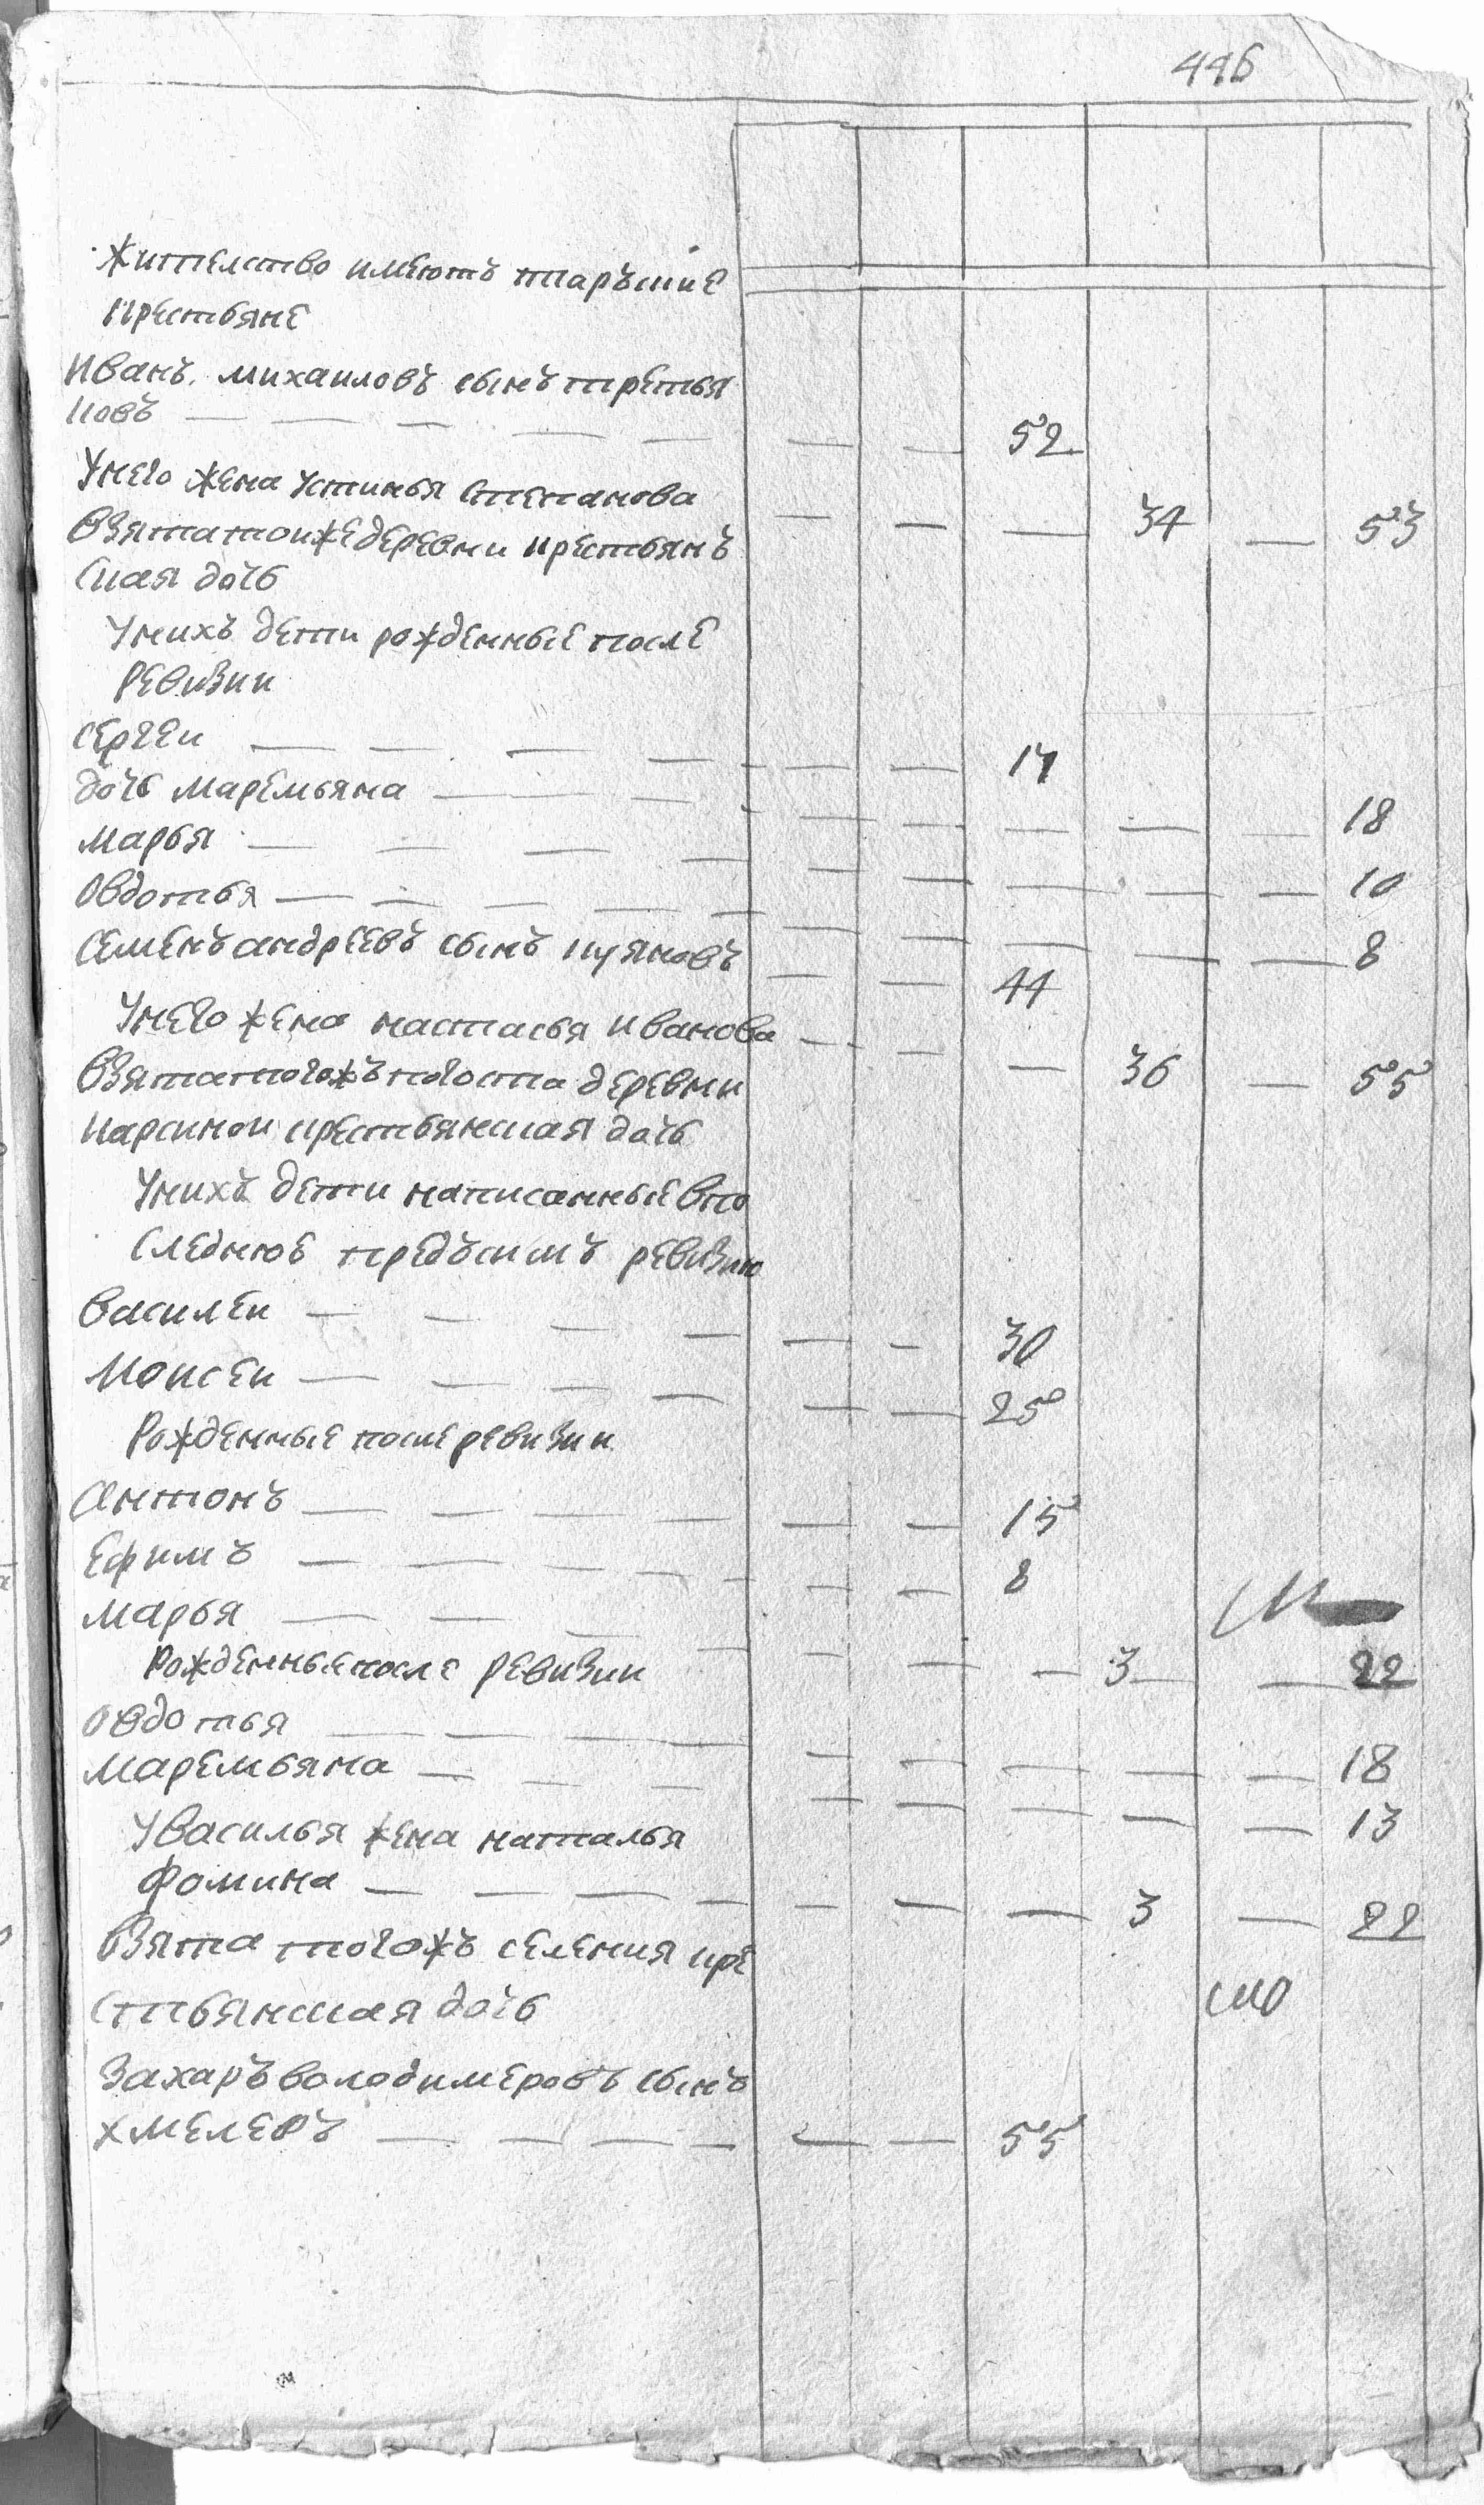 446
Жителство имеютъ пляръшие
крестьяне
Иванъ михаиловъ сынъ третья
ковъ — — — — — — — 52
Унего жена устинья степанова — — — 34 — 53
Взята тоиже деревни крестьянъ
ская дочь
Унихъ дети рожденные после
ревизии
Сергеи — — — — — — 17
дочь маремьяна — — — — — — — — 18
марья — — — — — — — — — 10
овдотья — — — — — — — — — — 8
Семенъ андреевъ сынъ куяновъ — — 44
Унего жена настасья иванова — — — 36 — 55
Взята тогожъ погоста деревни
карсинои крестьянская дочь
Унихъ дети написанные впо
следнюе предъсимъ ревизию
василеи — — — — — — 30
Моисеи — — — — — — 25
Рожденные после ревизии
Антонъ — — — — — — 15
Ефимъ — — — — — — — 8
марья — — — — — — — 3 — 22
Рожденные после ревизии
овдотья — — — — — — — — — 18
маремьяна — — — — — — — — 13
Увасилья жена наталья
фомина — — — — — — — 3 — 22
Взята тогожъ селения кре
стьянская дочь
Захаръ володимеровъ сынъ
хмелевъ — — — — — — 55